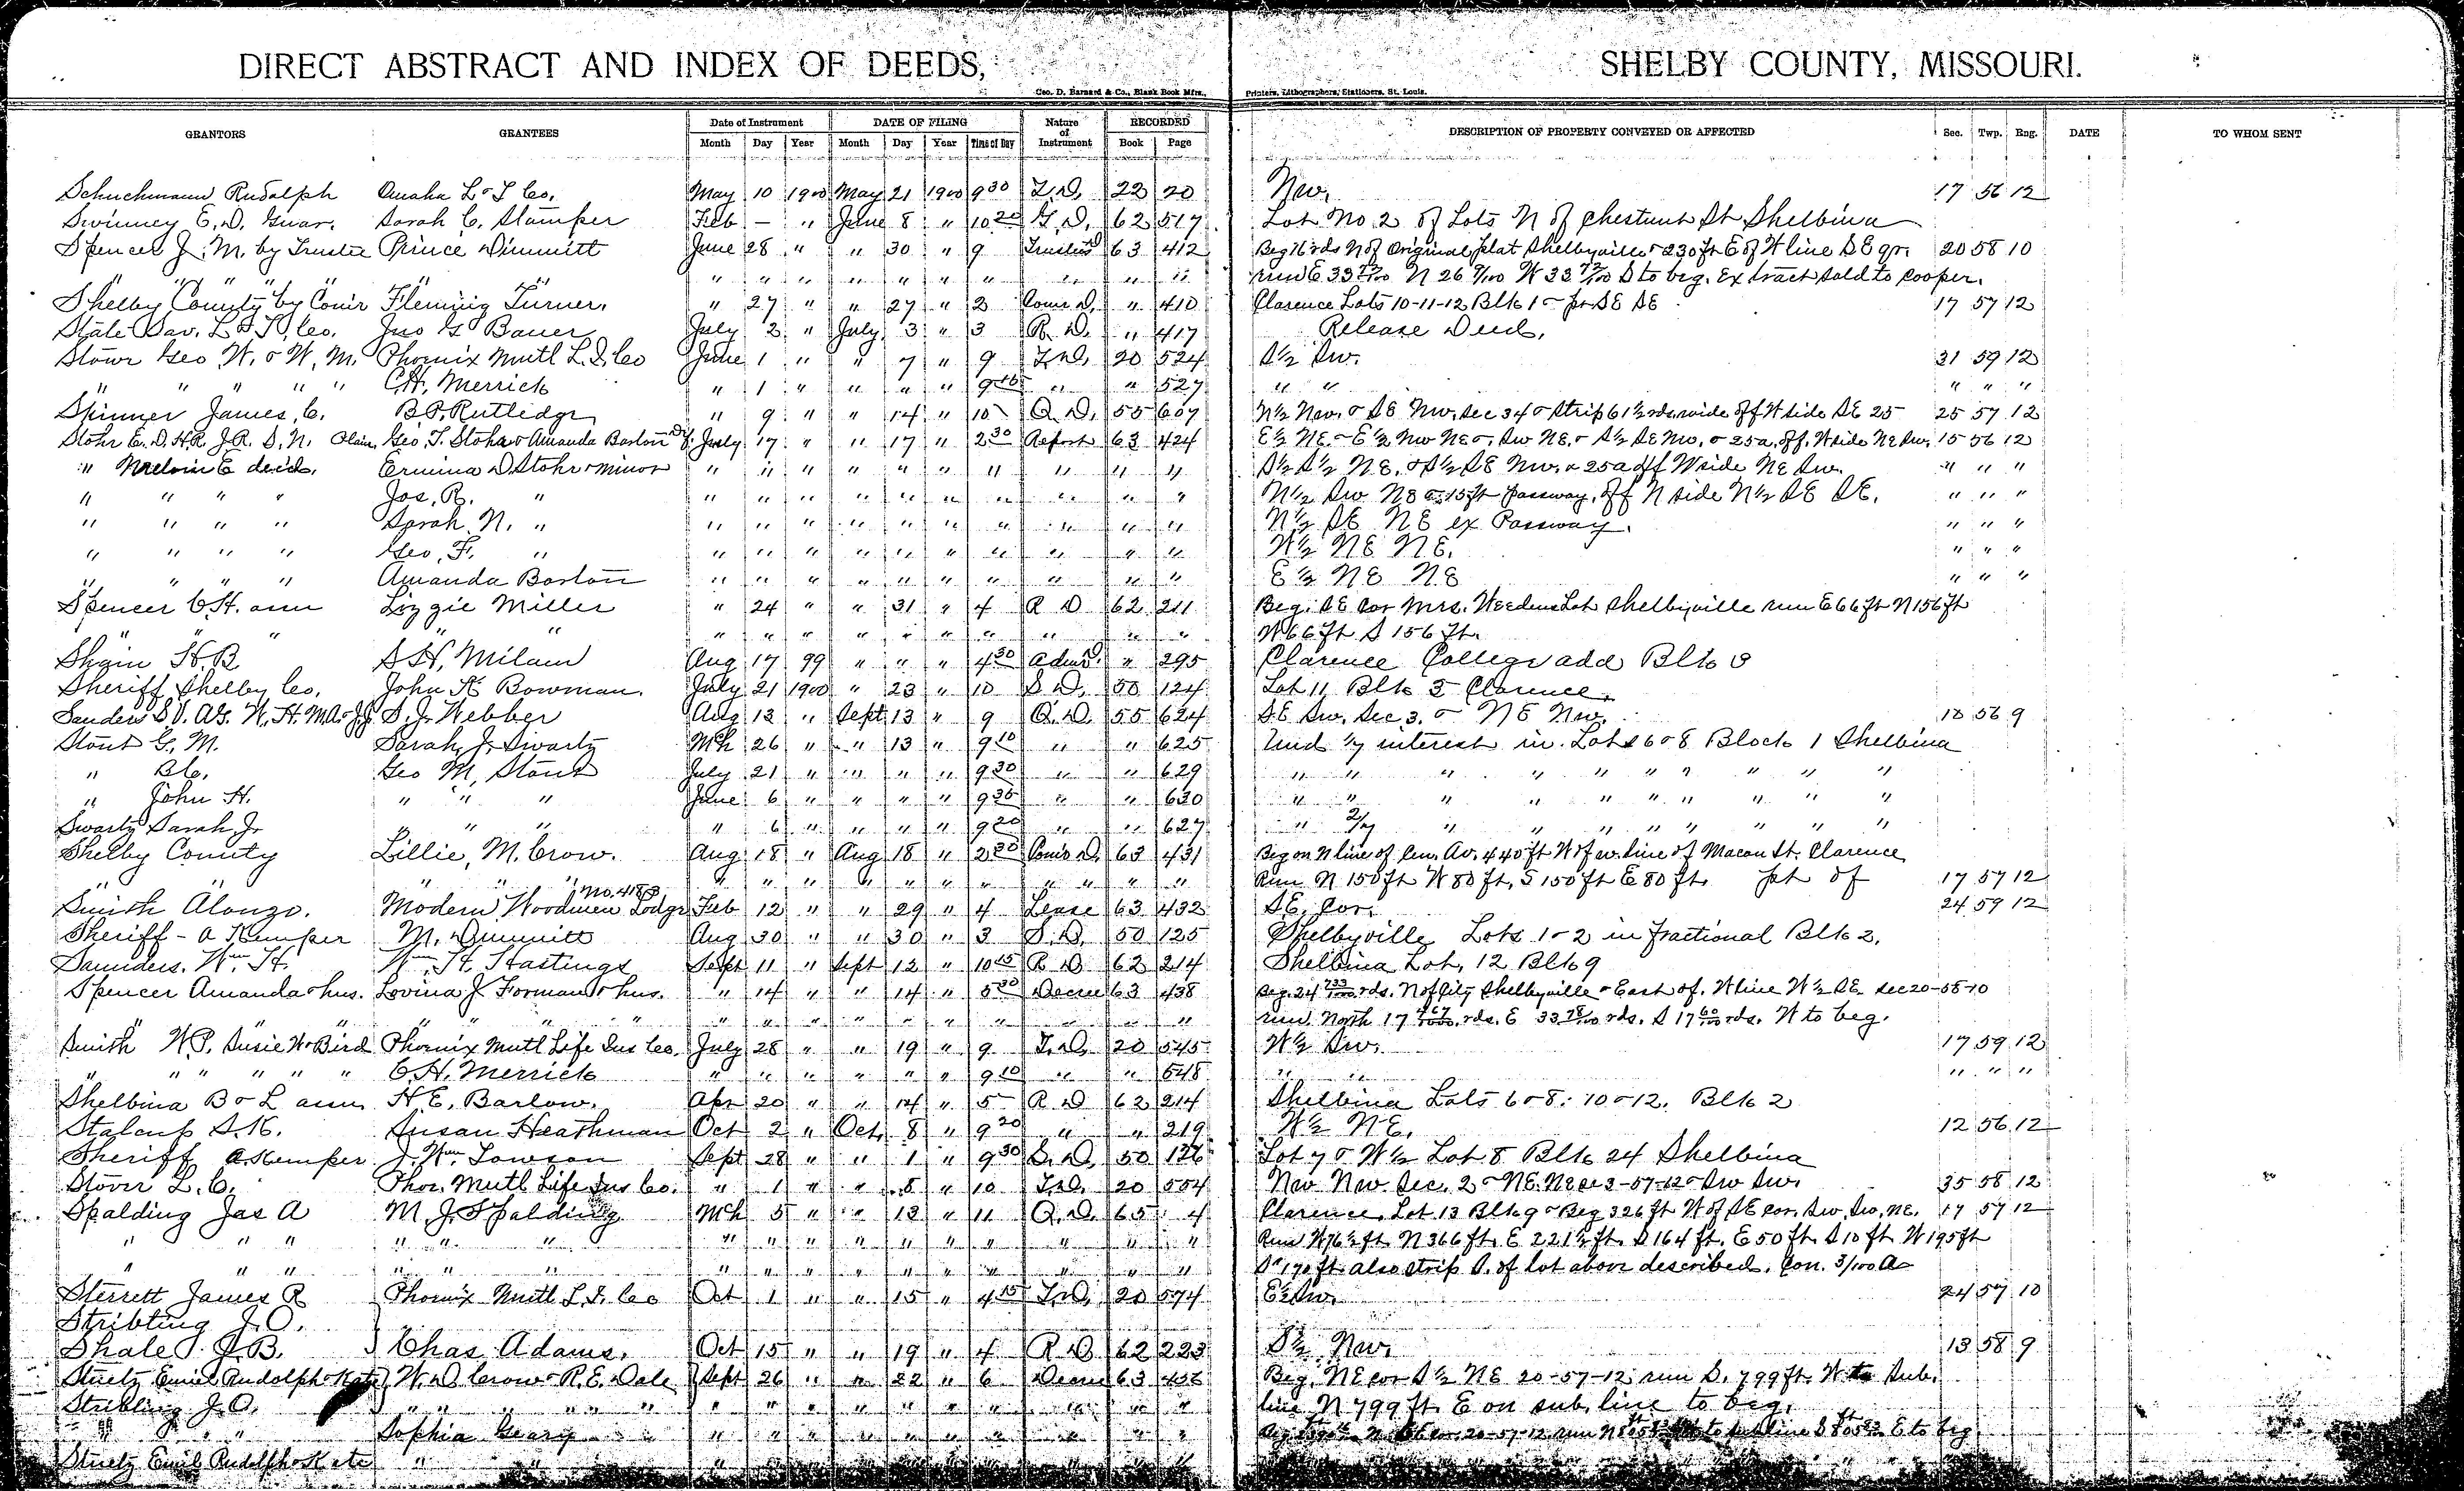 DIRECT ABSTRACT AND INDEX OF DEEDS, SHELBY COUNTY, MISSOURI.
Geo. D. Barnard & Co., Blank Book Mfrs., Printers, Lithographers, Stationers, St. Louis.
GRANTORS GRANTEES Date of Instrument DATE OF FILING Nature of Instrument RECORDED DESCRIPTION OF PROPERTY CONVEYED OR AFFECTED Sec. Twp. Rng. DATE TO WHOM SENT
Month Day Year Month Day Year Time of Day Book Page
Schuchmann Rudolph Omaha L & T Co. May 10 1900 May 21 1900 9 30 T.D. 22 20 Nw. 17 56 12
Swinney E. D. Guar. Sarah C. Stamper Feb - " June 8 " 10 20 G. D. 62 517 Lot No 2 of Lots N of Chestnut St Shelbina
Spencer J. M. by Trustee Prince Dimmitt June 28 " " 30 " 9 Trustees 63 412 Beg 16 rds N of Original plat Shelbyville & 230 ft E of W line SE qr. 20 58 10
" " " " " " " " " " " " " run E 33 N 26 W 33 S to beg. Ex tract sold to Cooper.
Shelby County by Comr Fleming Turner. " 27 " " 27 " 2 Coms D. " 410 Clarence Lots 10-11-12 Blk 1 & pr SE SE 17 57 12
State Sav. L & T, Co. Jno G Bauer July 2 " July 3 " 3 R. D. " 417 Release Deed.
Stowr Geo W. & W. M. Phoenix Mutl L. I. Co June 1 " " 7 " 9 T.D. 20 524 S½ Sw. 31 59 12
" " " " " C.H. Merrick " 1 " " " " 9 15 " " 527 " " " " "
Skinner James, C. B. P. Rutledge " 9 " " 14 " 10 Q. D. 55 607 N½ Nw. & SE Nw, Sec 34 & Strip 61½ rds. wide off W side SE 25 25 57 12
Stohr E. D. H.R. J.R. S. N. Geo. F. Stohr & Amanda Barton July 17 " " 17 " 2 30 Report 63 424 E½ NE. & E½ Nw NE &. Sw NE. & S½ SE Nw. & 25a. off. W side NE Sw. 15 56 12
" E decd. Ermina D. Stohr minor " " " " " " " " " " S½ S½ NE. & S½ SE Nw. & 25a off W side NE Sw. " " "
" " " " Jos. R. " " " " " " " " " " " N½ Sw NE & 15 ft passway, off N side N½ SE SE. " " "
" " " " Sarah N. " " " " " " " " " " " N½ SE NE ex Passway. " " "
" " " " Geo. F. " " " " " " " " " " " W½ NE NE. " " "
" " " " Amanda Barton " " " " " " " " " " E½ NE NE " " "
Spencer C.H. ann Lizzie Miller " 24 " " 31 " 4 R D 62 211 Beg. SE Cor Mrs. Weedens Lot Shelbyville run E 66 ft N 156 ft
" " " " " " " " " " " " " " " W 66 ft S 156 ft.
Shain H. B S.H. Milam Aug 17 99 " " " 4 30 Adms. " 295 Clarence College add Blk 3
Sheriff Shelby Co. John H Bowman. July 21 1900 " 23 " 10 S D. 50 124 Lot 11 Blk 5 Clarence.
Sanders S. J. Webber Aug 13 " Sept 13 " 9 Q. D. 55 624 SE Sw. Sec 3. & NE Nw. 10 56 9
Stout G. M. Sarah, J. Swartz Mch 26 " " 13 " 9 10 " " 625 Und 1/7 interest in. Lots 6 & 8 Block 1 Shelbina
" Geo M, Stout July 21 " " " " 9 30 " " 629 " " " " " " " " " "
" John H. " " " June 6 " " " " 9 35 " " 630 " " " " " " " " " "
Swartz Sarah J. " " " " 6 " " " " 9 20 " " 627 " 2/7 " " " " " " " "
Shelby County Lillie, M. Crow. Aug 18 " Aug 18 " 2 30 Coms D. 63 431 Beg on N line of Cen. Av. 440 ft W of w. line of Macon St. Clarence
" " " " " " " " " " " " " " " Run N 150 ft W 80 ft, S 150 ft E 80 ft. pt of 17 57 12
Smith Alonzo. Modern Woodmen Lodge Feb 12 " " 29 " 4 Lease 63 432 SE. Cor. 24 59 12
Sheriff - A Kemper M. Dimmitt Aug 30 " " 30 " 3 S. D. 50 125 Shelbyville Lots 1 & 2 in fractional Blk 2.
Saunders. Wm. H. Wm. H. Hastings Sept 11 " Sept 12 " 10 15 R D 62 214 Shelbina Lot, 12 Blk 9
Spencer Amanda & hus. Lovina J Forman & hus. " 14 " " 14 " 5 30 Decree 63 438 Beg. 24 rds. N of City Shelbyville & East of. W line W½ SE Sec 20-58-10
" " " " " " " " " " " " " " " run. North 17 rds. E 33 78/100 rds. S 17 60/100 rds. W to beg.
Smith W. P. Susie W. Bird Phoenix Mutl Life Ins Co. July 28 " " 19 " 9 T.D. 20 545 W½ Sw. 17 59 12
" " " " " " C.H. Merrick " " " " " " 9 10 " " 548 " " " " "
Shelbina B & L assn H. E. Barlow. Apr 20 " " 14 " 5 R D 62 214 Shelbina Lots 6 & 8. 10 & 12. Blk 2
Stalcup S.K. Susan Heathman Oct 2 " Oct. 8 " 9 20 " " 219 W½ NE. 12 56 12
Sheriff A. Kemper J. Wm. Towson Sept 28 " " 1 " 9 30 S. D. 50 126 Lot 7 & W½ Lot 8 Blk 24 Shelbina
Stover L. C. Phoe. Mutl Life Ins Co. " 1 " " 5 " 10 T.D. 20 554 Nw Nw. Sec. 2 & NE. NE Sec 3-57-12 & Sw Sw. 35 58 12
Spalding Jas A M. J. Spalding Mch 5 " " 13 " 11 Q. D. 65 4 Clarence. Lot 13 Blk 9 & Beg 326 ft W of SE cor. Sw, Sw, NE. 17 57 12
" " " " " " " " " " " " " " " " Run W 76½ ft. N 366 ft. E 221½ ft. S 164 ft. E 50 ft. S 10 ft W 195 ft
" " " " " " " " " " " " " " " " S 170 ft. also strip S. of lot above described. Con. 3/100 a
Sterrett James R Phoenix Mutl L. I. Co Oct 1 " " 15 " 4 15 T.D. 20 574 E½ Sw. 24 57 10
Stribling J. O.
Shale J. B. Chas Adams. Oct 15 " " 19 " 4 R D 62 223 S½ Nw. 13 58 9
Stuetz Emiel Rudolph & Kate W. D Crow & R. E. Dale Sept 26 " " 22 " 6 Decree 63 Beg. NE cor S½ NE 20-57-12 run S. 799 ft. W to Sub.
Stribling J. O. " " " " " " " " " " " " " " line N 799 ft. E on sub. line to beg.
" " " Sophia Geary " " " " " " " " " " 20-57-12 run N to sub line S E to beg
Stuetz Emil Rudolph & Kate " " " " " " " " " " "